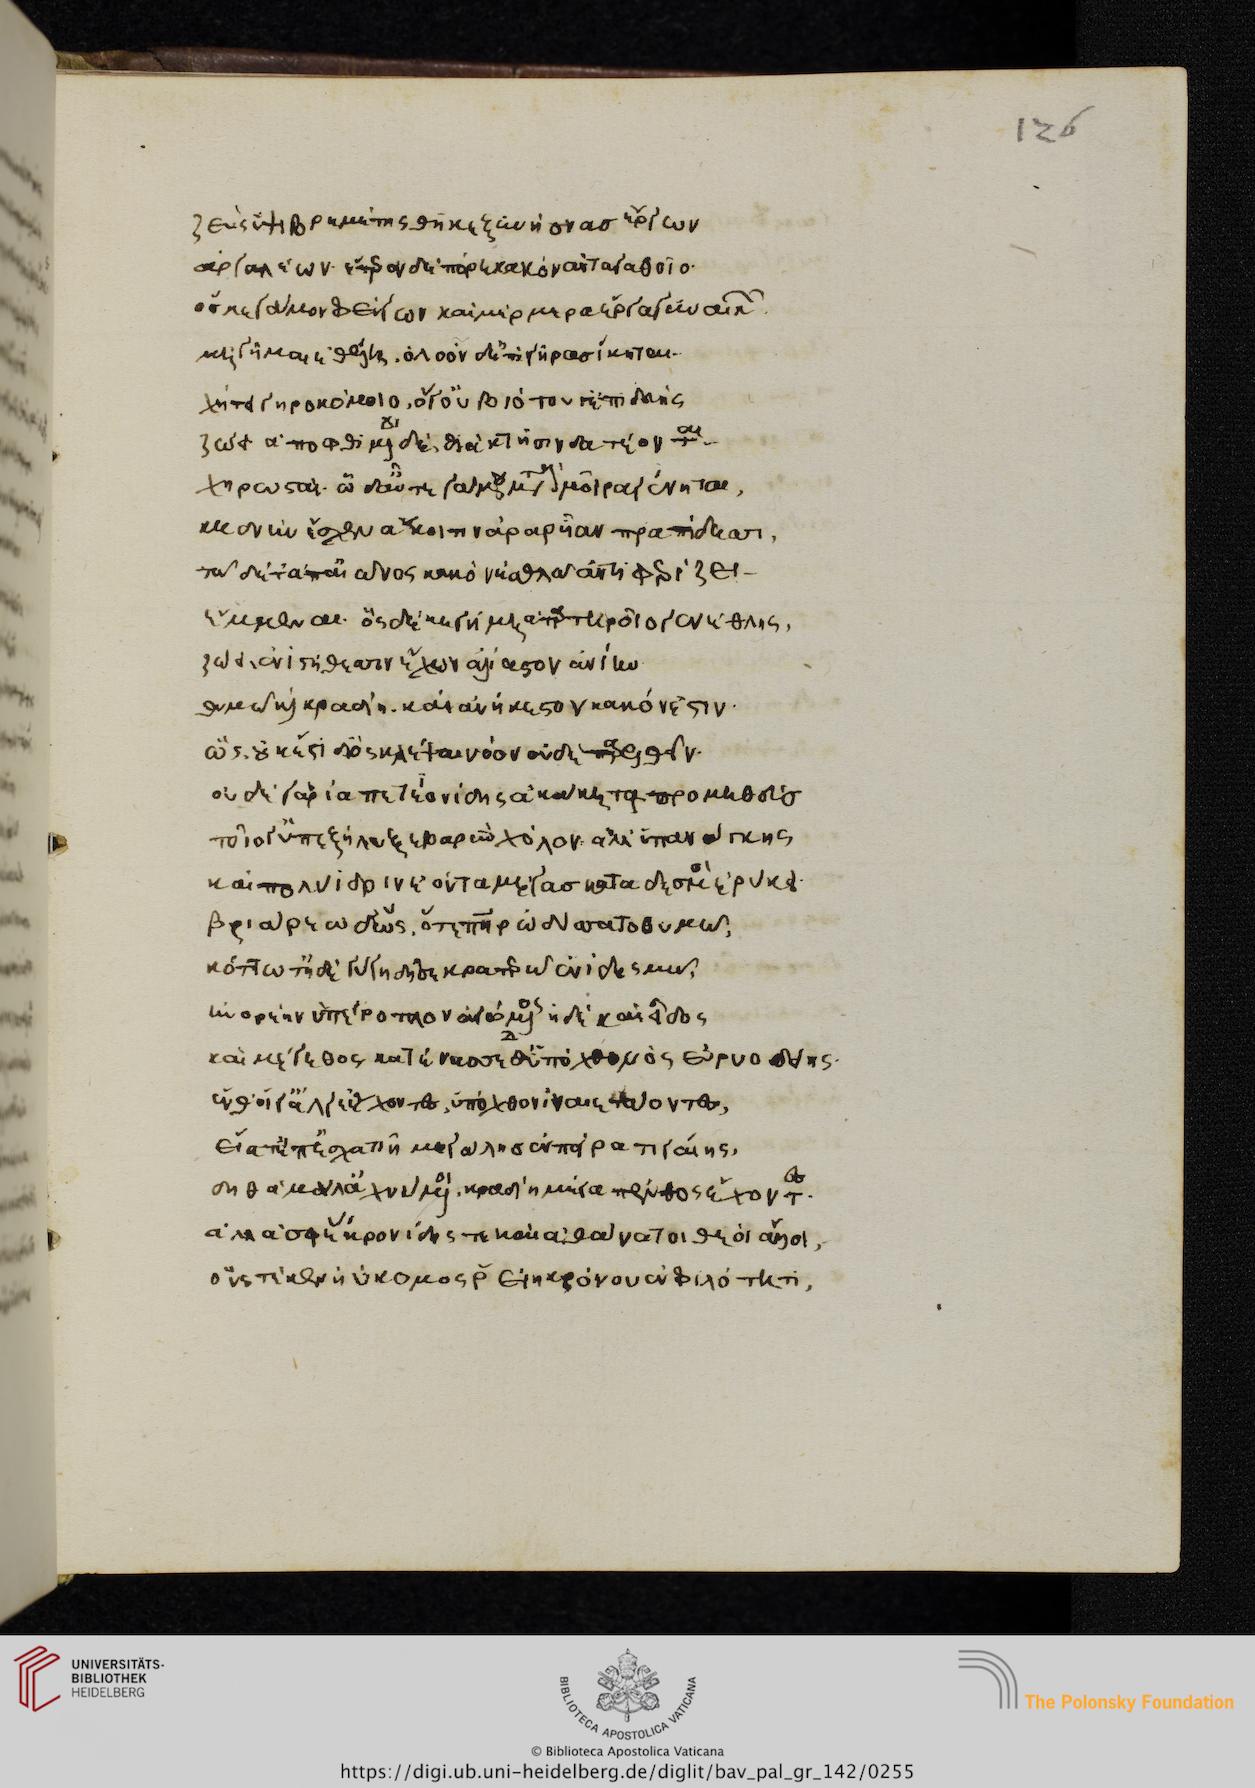 126
ζεὺς ὑψιβρεμέτης θῆκε ξυνήονας ἔργων
ἀργαλέων. ἕτερον δὲ πόρε κακὸν ἀντ' ἀγαθοῖο.
ὅς κε γάμον φεύγων καὶ μέρμερα ἔργα γυναικῶν
μὴ γῆμαι ἐθέλῃ. ὀλοὸν δ' ἐπὶ γῆρας ἵκηται.
χήτει γηροκόμοιο, ὅ γ' οὐ βιότου ἐπιδευὴς
ζώει ἀποφθιμένου δὲ διὰ κτῆσιν δατέονται
χηρωσταί. ᾧ δ' αὖτε γάμου μετὰ μοῖρα γένηται,
κεδνὴν ἔσχεν ἄκοιτιν ἀραρυῖαν πραπίδεσσι,
τῷ δέ τ' ἀπ' αἰῶνος κακὸν ἐσθλῷ ἀντιφερίζει
ἔμμεναι. ὃς δέ κε τέτμῃ ἀταρτηροῖο γενέθλης,
ζώει ἐνὶ στήθεσσιν ἔχων ἀλίαστον ἀνίην
θυμῷ καὶ κραδίῃ. καὶ ἀνήκεστον κακόν ἐστιν.
ὣς οὐκ ἔστι διὸς κλέψαι νόον οὐδὲ παρελθεῖν.
οὐδὲ γὰρ ἰαπετιονίδης ἀκάκητα προμηθεὺς
τοῖό γ' ὑπεξήλυξε βαρὺν χόλον. ἀλλ' ὑπ' ἀνάγκης
καὶ πολύιδριν ἐόντα μέγας κατὰ δεσμὸς ἐρύκει.
βριάρεῳ δ' ὡς, ὅτε πατὴρ ὠδύσσατο θυμῷ,
κόττῳ τ' ἠδὲ γύγῃ δῆσε κρατερῷ ἐνὶ δεσμῷ,
ἠνορέην ὑπέροπλον ἀγώμενος ἠδὲ καὶ εἶδος
καὶ μέγεθος κατένασσε δ' ὑπὸ χθονὸς εὐρυοδείης.
ἔνθ' οἵ γ' ἄλγε' ἔχοντες, ὑπὸ χθονὶ ναιετάοντες,
εἵατ' ἐπ' ἐσχατιῇ μεγάλης ἐν πείρασι γαίης,
δηθὰ μάλ' ἀχνύμενοι, κραδίῃ μέγα πένθος ἔχοντες.
ἀλλά σφε κρονίδης τε καὶ ἀθάνατοι θεοὶ ἄλλοι,
οὓς τέκεν ἠύκομος ῥείη κρόνου ἐν φιλότητι,
UNIVERSITÄTS-
BIBLIOTHEK
HEIDELBERG
BIBLIOTECA APOSTOLICA VATICANA
© Biblioteca Apostolica Vaticana
The Polonsky Foundation
https://digi.ub.uni-heidelberg.de/diglit/bav_pal_gr_142/0255